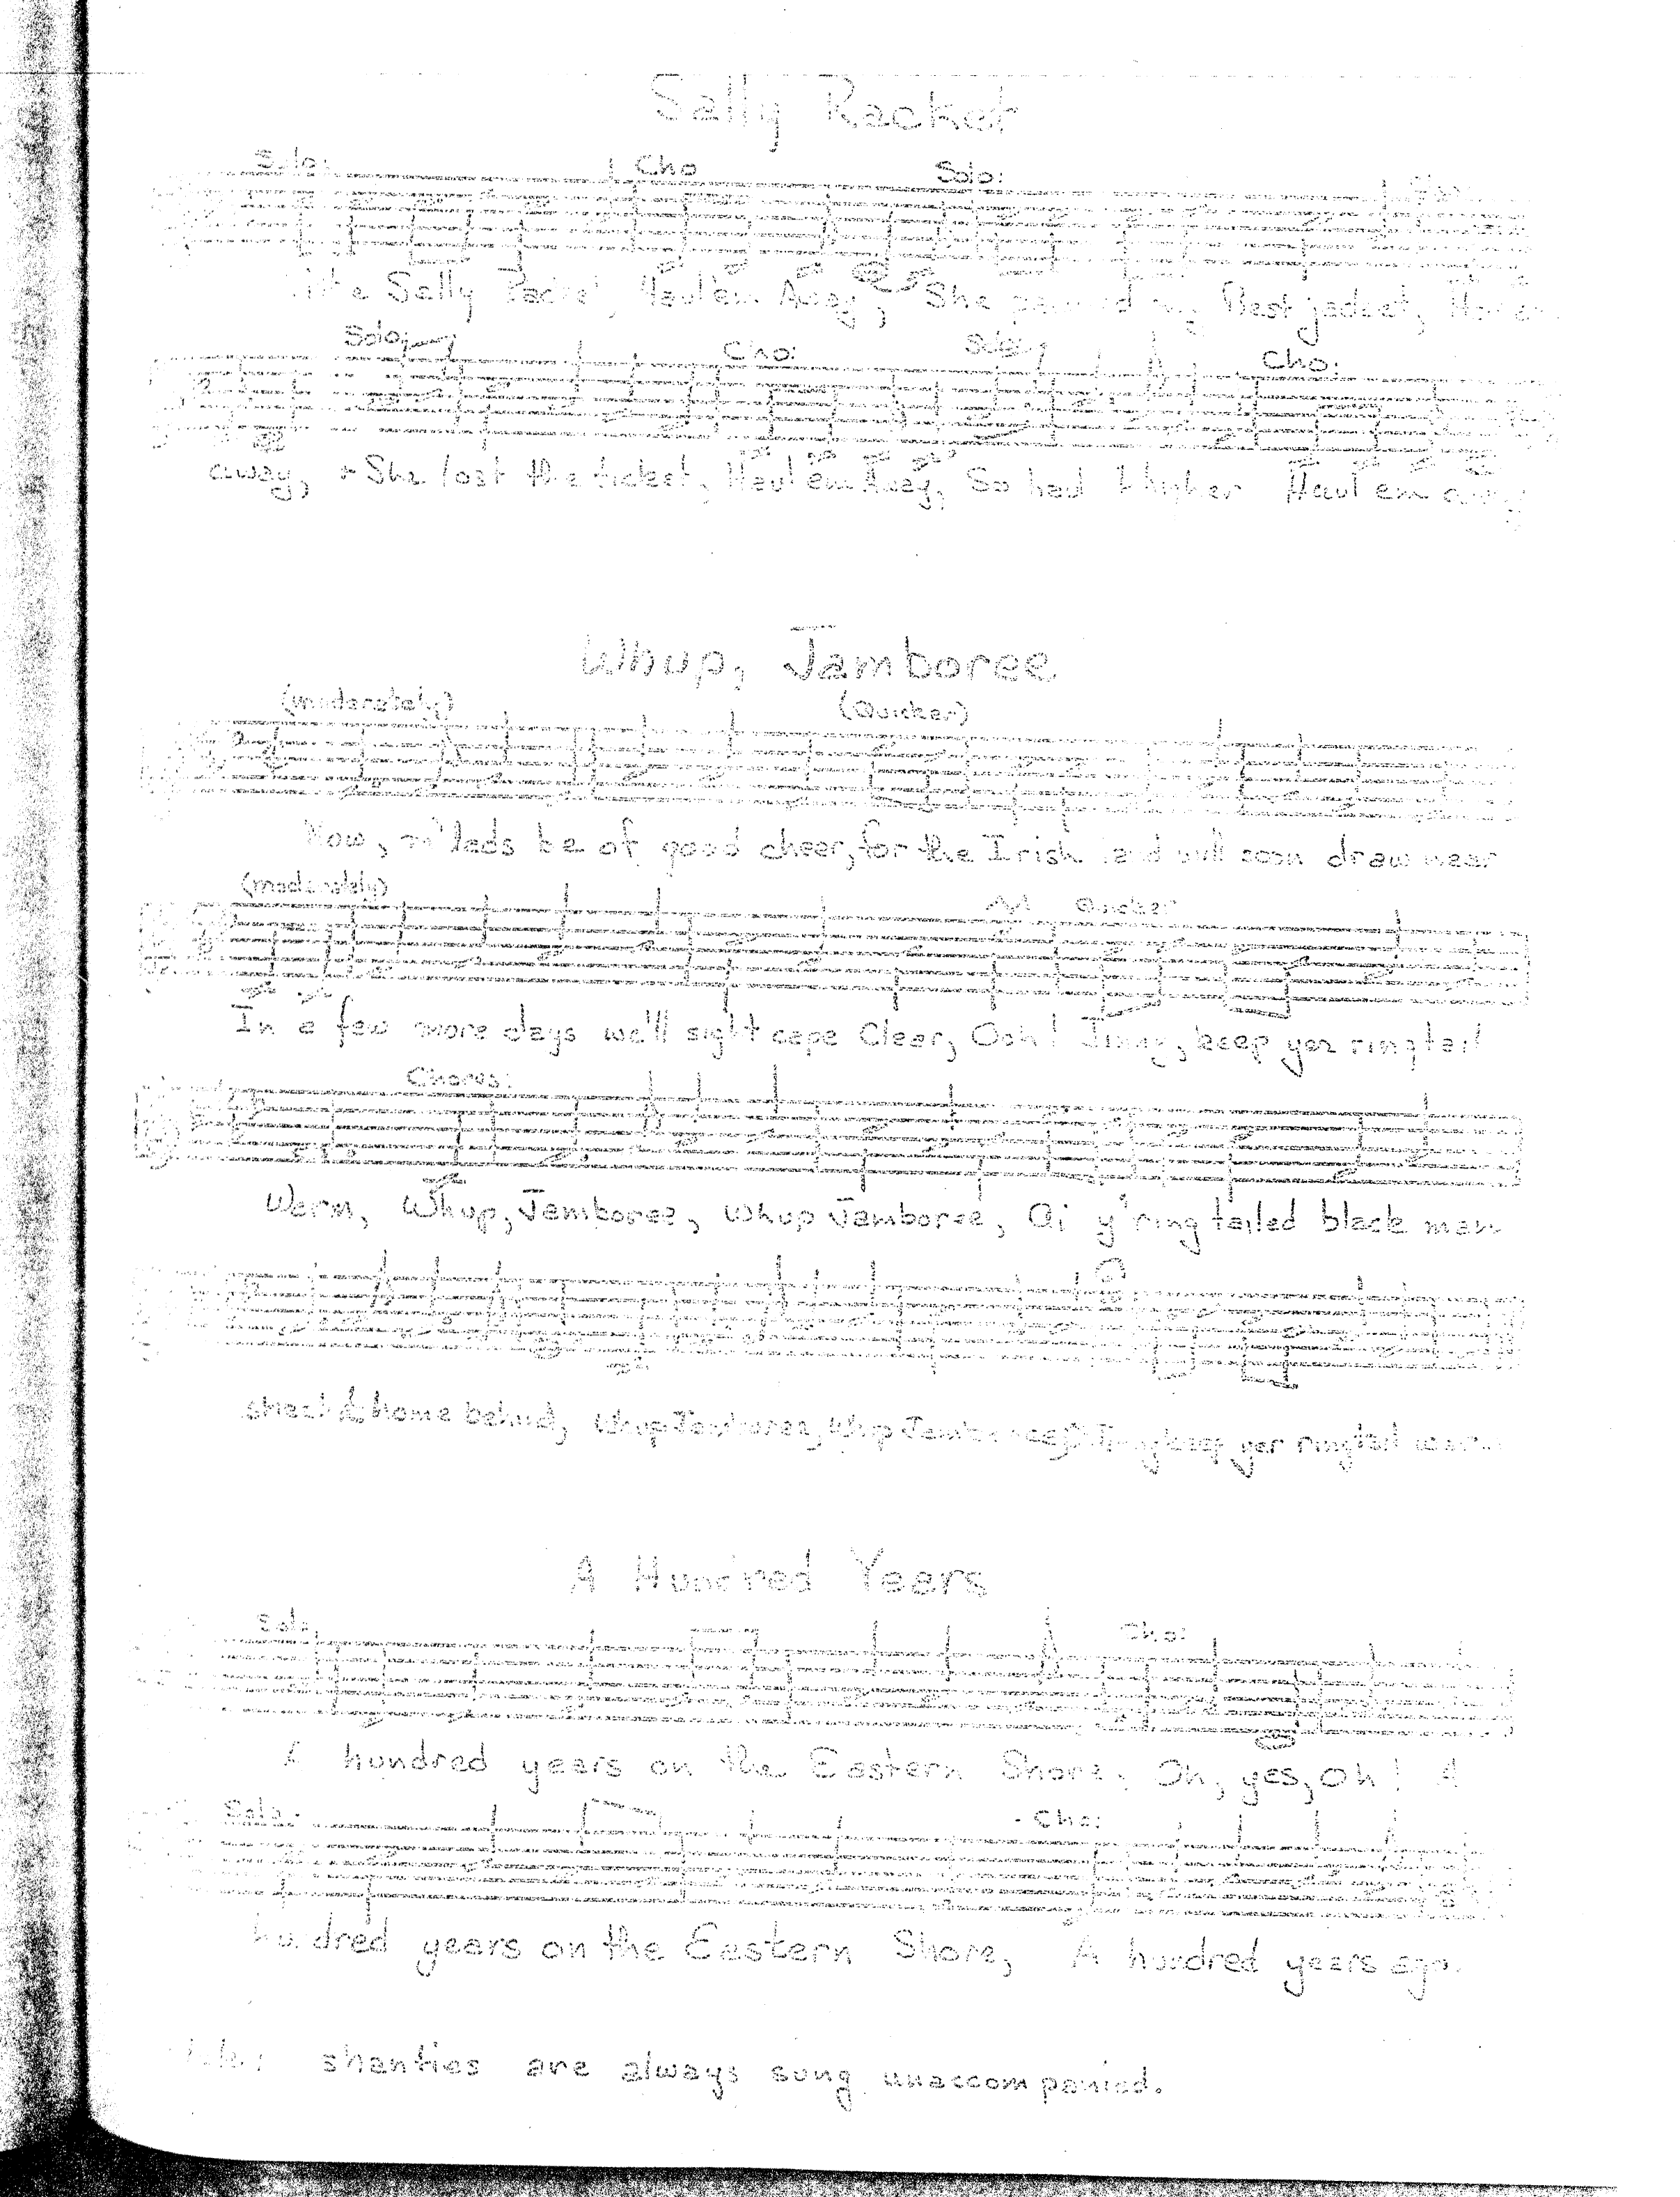 Sally Racket
Solo: Cho Solo:
Sally Racket, Haul em Away, She pawned my Best jacket, Haul em
Solo: Cho: Solo: Cho:
away, + She lost the ticket, Haul em Away, So haul Haul em away
Whup, Jamboree
(moderately) (Quicker)
Now, m'lads be of good cheer, for the Irish land will soon draw near
(moderately) Quicker
In a few more days we'll sight cape Clear, Ooh! Jinny, keep yer ringtail
Chorus:
Warm, Whup, Jamboree, Whup Jamboree, Oi y'ring tailed black man
sheet home behind, Whup Jamboree, Whup Jamboree, Jinny keep yer ringtail warm
A Hundred Years
Solo Cho:
A hundred years on the Eastern Shore, Oh, yes, Oh! A
Solo - Cho:
hundred years on the Eastern Shore, A hundred years ago.
shanties are always sung unaccompanied.